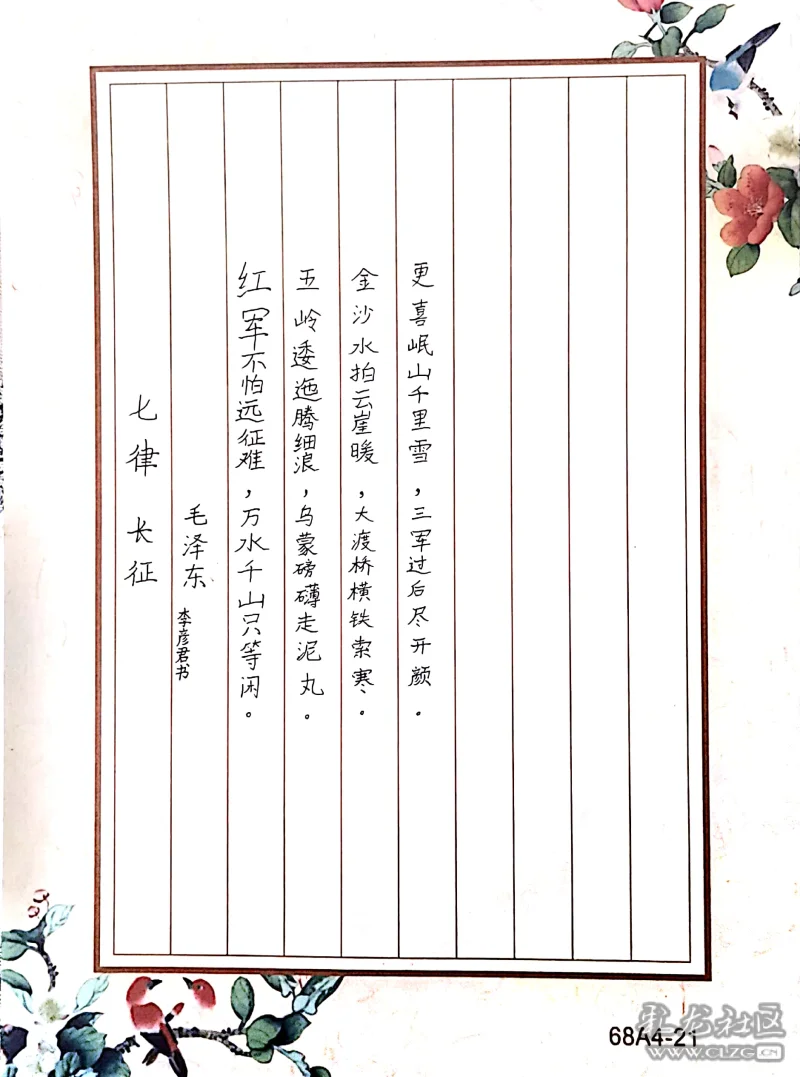 七律 长征
毛泽东 李彦君书
红军不怕远征难，万水千山只等闲。
五岭逶迤腾细浪，乌蒙磅礴走泥丸。
金沙水拍云崖暖，大渡桥横铁索寒。
更喜岷山千里雪，三军过后尽开颜。
68A4-21
龙社区
WWW.CLZG.CN